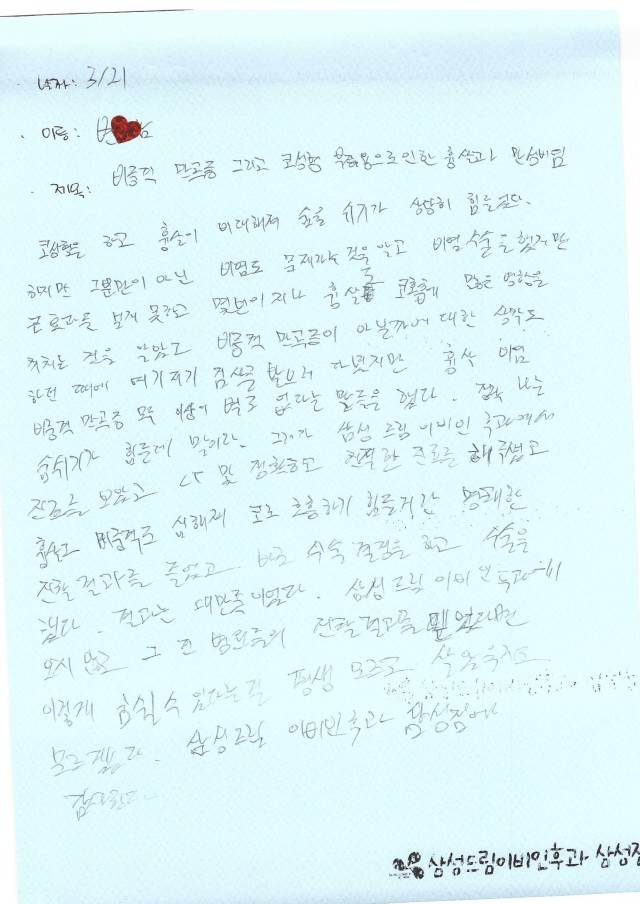 · 날짜: 3/21
· 이름: 변
· 제목: 비중격 만곡증 그리고 코성형 부작용으로 인한 흉살과 만성비염
코성형을 하고 흉살이 비대해져 숨을 쉬기가 상당히 힘들었다.
하지만 그뿐만이 아닌 비염도 문제라는 것을 알고 비염 수술을 했지만
큰 효과를 보지 못하고 몇번이 지나 흉살 코호흡에 많은 영향을
끼치는 것을 알았고 비중격 만곡증이 아닐까에 대한 생각도
하던 때에 여기저기 검사를 받으러 다녔지만 흉살 비염
비중격 만곡증 모두 이상이 별로 없다는 말들을 했다. 정작 나는
숨쉬기가 힘들데 말이다. 그러다 삼성드림이비인후과에서
진료를 보았고 CT 및 정확하고 친절한 진료를 해주셨고
흉살과 비중격도 심해져 코로 호흡하기 힘들거란 명쾌한
진찰 결과를 들었고 바로 수술 결정을 하고 수술을
했다. 결과는 대만족이었다. 삼성드림이비인후과에
오지 않고 그 전 병원들의 진찰결과를 믿었다면
이렇게 숨쉴 수 있다는걸 평생 모르고 살았을지도
모르겠다. 삼성드림 이비인후과 삼성점에
감사드린다.
삼성드림이비인후과 삼성점